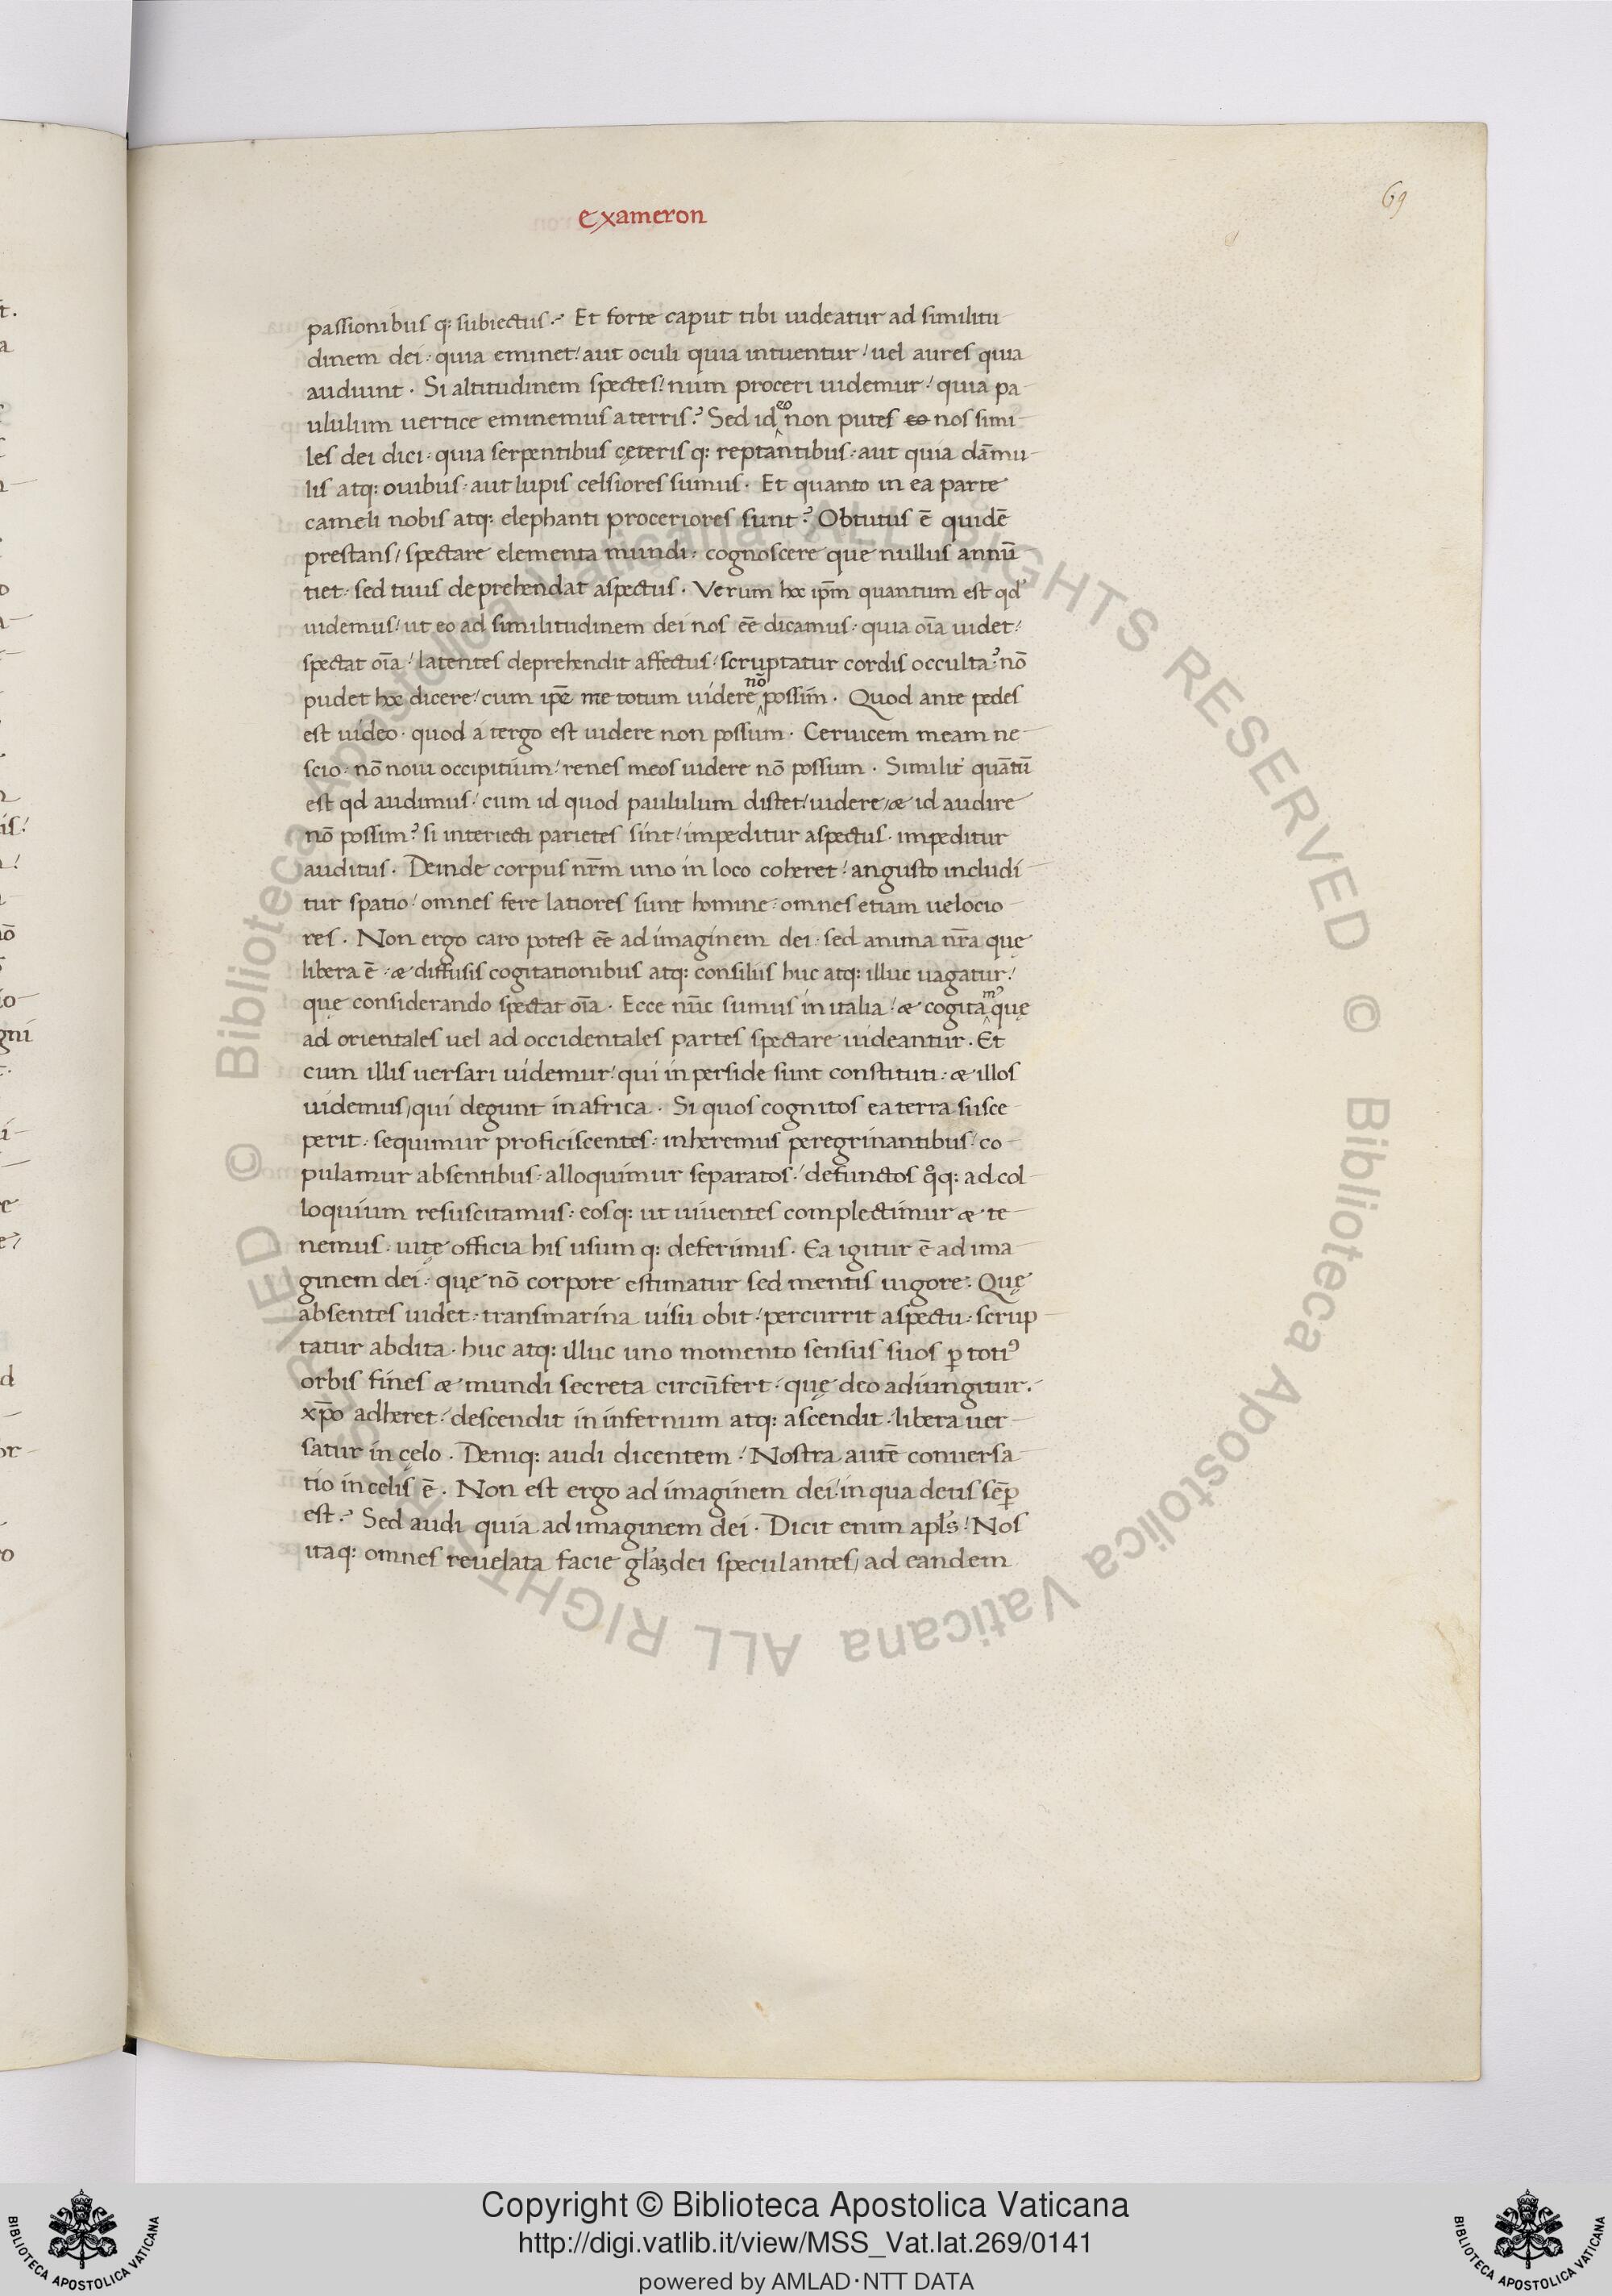 69
exameron
passionibus q: subiectus? Et forte caput tibi uideatur ad similitu
dinem dei: quia eminet/ aut oculi quia intuentur/ uel aures quia
audiunt. Si altitudinem spectes/ num proceri uidemur/ quia pa-
ululum uertice eminemus a terris? Sed id eo non putes eo nos simi-
les dei dici: quia serpentibus cęteris q: reptantibus: aut quia dāmu-
lis atq: ouibus: aut lupis celsiores sumus. Et quanto in ea parte
cameli nobis atq: elephanti proceriores sunt? Obtutus ē quidē
prestans/ spectare elementa mundi: cognoscere que nullus annū
tiet: sed tuus deprehendat aspectus. Verum hoc ip̄m quantum est qd
uidemus/ ut eo ad similitudinem dei nos eē dicamus: quia oīa uidet/
spectat oīa/ latentes deprehendit affectus/ scruptatur cordis occulta? nō
pudet hoc dicere/ cum ip̄e me totum uidere nō possim. Quod ante pedes
est uideo. quod a tergo est uidere non possum. Ceruicem meam ne-
scio: nō noui occipitium/ renes meos uidere nō possum. Similit' quātū
est qd audimus/ cum id quod paululum distet/ uidere/ æ id audire
nō possim? si interiecti parietes sint/ impeditur aspectus. impeditur
auditus. Deinde corpus nr̄m uno in loco coheret/ angusto includi-
tur spatio/ omnes fere latiores sunt homine: omnes etiam uelocio-
res. Non ergo caro potest eē ad imaginem dei: sed anima nr̄a quę
libera ē. æ diffusis cogitationibus atq: consiliis huc atq: illuc uagatur/
que considerando spectat oīa. Ecce nūc sumus in italia/ æ cogitamꝰ quę
ad orientales uel ad occidentales partes spectare uideantur. Et
cum illis uersari uidemur/ qui in perside sunt constituti: æ illos
uidemus/ qui degunt in africa. Si quos cognitos ea terra susce-
perit: sequimur proficiscentes: inheremus peregrinantibus/ co-
pulamur absentibus: alloquimur separatos/ defunctos qͦq: ad col-
loquium resuscitamus: eosq: ut uiuentes complectimur æ te-
nemus: uitę officia his usum q: deferimus. Ea igitur ē ad ima-
ginem dei: quę nō corpore estimatur sed mentis uigore. Quę
absentes uidet: transmarina uisu obit/ percurrit aspectu: scrup-
tatur abdita. huc atq: illuc uno momento sensus suos ꝑ totiꝰ
orbis fines æ mundi secreta circūfert. quę deo adiungitur.
xp̄o adheret/ descendit in infernum atq: ascendit. libera uer-
satur in cęlo. Deniq: audi dicentem/ Nostra autē conuersa-
tio in celis ē. Non est ergo ad imaginem dei/ in qua deus sēꝑ
est? Sed audi quia ad imaginem dei. Dicit enim apl's/ Nos
itaq: omnes reuelata facie gl'aꝫ dei speculantes/ ad eandem
© Biblioteca Apostolica Vaticana ALL RIGHTS RESERVED © Biblioteca Apostolica Vaticana ALL RIGHTS RESERVED
Copyright © Biblioteca Apostolica Vaticana
http://digi.vatlib.it/view/MSS_Vat.lat.269/0141
powered by AMLAD·NTT DATA
BIBLIOTECA APOSTOLICA VATICANA
BIBLIOTECA APOSTOLICA VATICANA